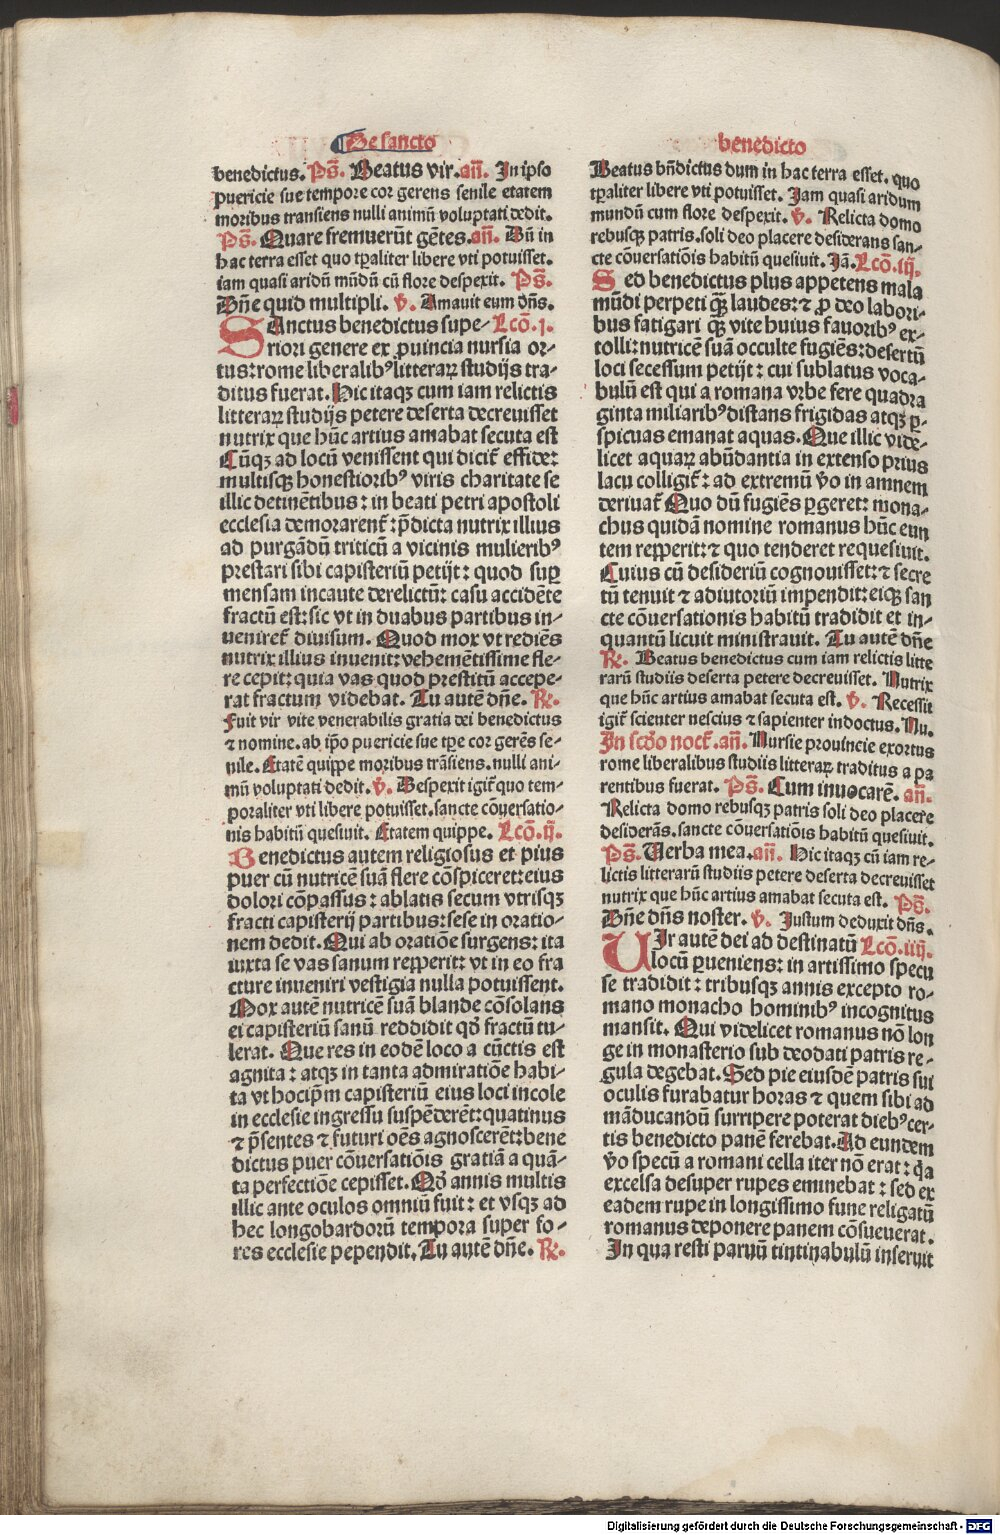 De sancto
benedictus. Ps̄. Beatus vir. an̄. In ipso
puericie sue tempore cor gerens senile etatem
moribus transiens nulli animū voluptati dedit.
Ps̄. Quare fremuerūt gētes. an̄. Dū in
hac terra esset quo tꝑaliter libere vti potuisset.
iam quasi aridū mūdū cū flore despexit. Ps̄.
Dn̄e quid multipli. v̄. Amauit eum dn̄s.
SAnctus benedictus supe- Lcō. j.
riori genere ex ꝓuincia nursia or-
tus: rome liberalibꝰ litteraꝝ studijs tra-
ditus fuerat. Hic itaqꝫ cum iam relictis
litteraꝝ studijs petere deserta decreuisset
nutrix que hūc artius amabat secuta est
Cūqꝫ ad locū venissent qui dicit̄ effide:
multisqꝫ honestioribꝰ viris charitate se
illic detinētibus: in beati petri apostoli
ecclesia demorarent̄: p̄dicta nutrix illius
ad purgādū triticū a vicinis mulieribꝰ
prestari sibi capisteriū petijt: quod suꝑ
mensam incaute derelictū: casu accidēte
fractū est: sic vt in duabus partibus in-
ueniret̄ diuisum. Quod mox vt rediēs
nutrix illius inuenit: vehemētissime fle-
re cepit: quia vas quod prestitū accepe-
rat fractum videbat. Tu autē dn̄e. ℟.
Fuit vir vite venerabilis gratia dei benedictus
⁊ nomine. ab ip̄o puericie sue tꝑe cor gerēs se-
nile. Etatē quippe moribus trāsiens. nulli ani-
mū voluptati dedit. v̄. Despexit igit̄ quo tem-
poraliter vti libere potuisset. sancte cōuersatio-
nis habitū quesiuit. Etatem quippe. Lcō. ij.
Benedictus autem religiosus et pius
puer cū nutricē suā flere cōspiceret: eius
dolori cōpassus: ablatis secum vtrisqꝫ
fracti capisterij partibus: sese in oratio-
nem dedit. Qui ab oratiōe surgens: ita
iuxta se vas sanum repperit: vt in eo fra
cture inueniri vestigia nulla potuissent.
Mox autē nutricē suā blande cōsolans
ei capisteriū sanū reddidit qd̄ fractū tu-
lerat. Que res in eodē loco a cūctis est
agnita: atqꝫ in tanta admiratiōe habi-
ta vt hocip̄m capisteriū eius loci incole
in ecclesie ingressu suspēderēt: quatinus
⁊ p̄sentes ⁊ futuri oēs agnoscerēt: bene
dictus puer cōuersatiōis gratiā a quā-
ta perfectiōe cepisset. Qd̄ annis multis
illic ante oculos omniū fuit: et vsqꝫ ad
hec longobardorū tempora super fo-
res ecclesie pependit. Tu autē dn̄e. ℟.
benedicto
Beatus bn̄dictus dum in hac terra esset. quo
tꝑaliter libere vti potuisset. Jam quasi aridum
mundū cum flore despexit. v̄. Relicta domo
rebusqꝫ patris. soli deo placere desiderans san-
cte cōuersatiōis habitū quesiuit. Jā. Lcō. iij.
Sed benedictus plus appetens mala
mūdi perpeti qꝫ̄ laudes: ⁊ ꝓ deo labori-
bus fatigari qꝫ̄ vite huius fauoribꝰ ex-
tolli: nutricē suā occulte fugiēs: desertū
loci secessum petijt: cui sublatus voca-
bulū est qui a romana vrbe fere quadra
ginta miliaribꝰ distans frigidas atqꝫ ꝑ-
spicuas emanat aquas. Que illic vide-
licet aquaꝝ abūdantia in extenso prius
lacu colligit̄: ad extremū v̄o in amnem
deriuat̄ Quo dū fugiēs ꝑgeret: mona-
chus quidā nomine romanus hūc eun
tem repperit: ⁊ quo tenderet requesiuit.
Cuius cū desideriū cognouisset: ⁊ secre
tū tenuit ⁊ adiutoriū impendit: eiqꝫ san
cte cōuersationis habitū tradidit et in-
quantū licuit ministrauit. Tu autē dn̄e
℟. Beatus benedictus cum iam relictis litte
rarū studiis deserta petere decreuisset. Nutrix
que hūc artius amabat secuta est. v̄. Recessit
igit̄ scienter nescius ⁊ sapienter indoctus. Nu.
In scd̄o noct̄. an̄. Nursie prouincie exortus
rome liberalibus studiis litteraꝝ traditus a pa
rentibus fuerat. Ps̄. Cum inuocarē. an̄.
Relicta domo rebusqꝫ patris soli deo placere
desiderās. sancte cōuersatiōis habitū quesiuit.
Ps̄. Uerba mea. an̄. Hic itaqꝫ cū iam re-
lictis litterarū studiis petere deserta decreuisset
nutrix que hūc artius amabat secuta est. Ps̄.
Dn̄e dn̄s noster. v̄. Justum deduxit dn̄s.
UIr autē dei ad destinatū Lcō. iiij.
locū ꝑueniens: in artissimo specu
se tradidit: tribusqꝫ annis excepto ro-
mano monacho hominibꝰ incognitus
mansit. Qui videlicet romanus nō lon
ge in monasterio sub deodati patris re-
gula degebat. Sed pie eiusdē patris sui
oculis furabatur horas ⁊ quem sibi ad
māducandū surripere poterat diebꝰ cer-
tis benedicto panē ferebat. Ad eundem
v̄o specū a romani cella iter nō erat: q̄a
excelsa desuper rupes eminebat: sed ex
eadem rupe in longissimo fune religatū
romanus deponere panem cōsueuerat.
In qua resti paruū tintinabulū inseruit
Digitalisierung gefördert durch die Deutsche Forschungsgemeinschaft - DFG